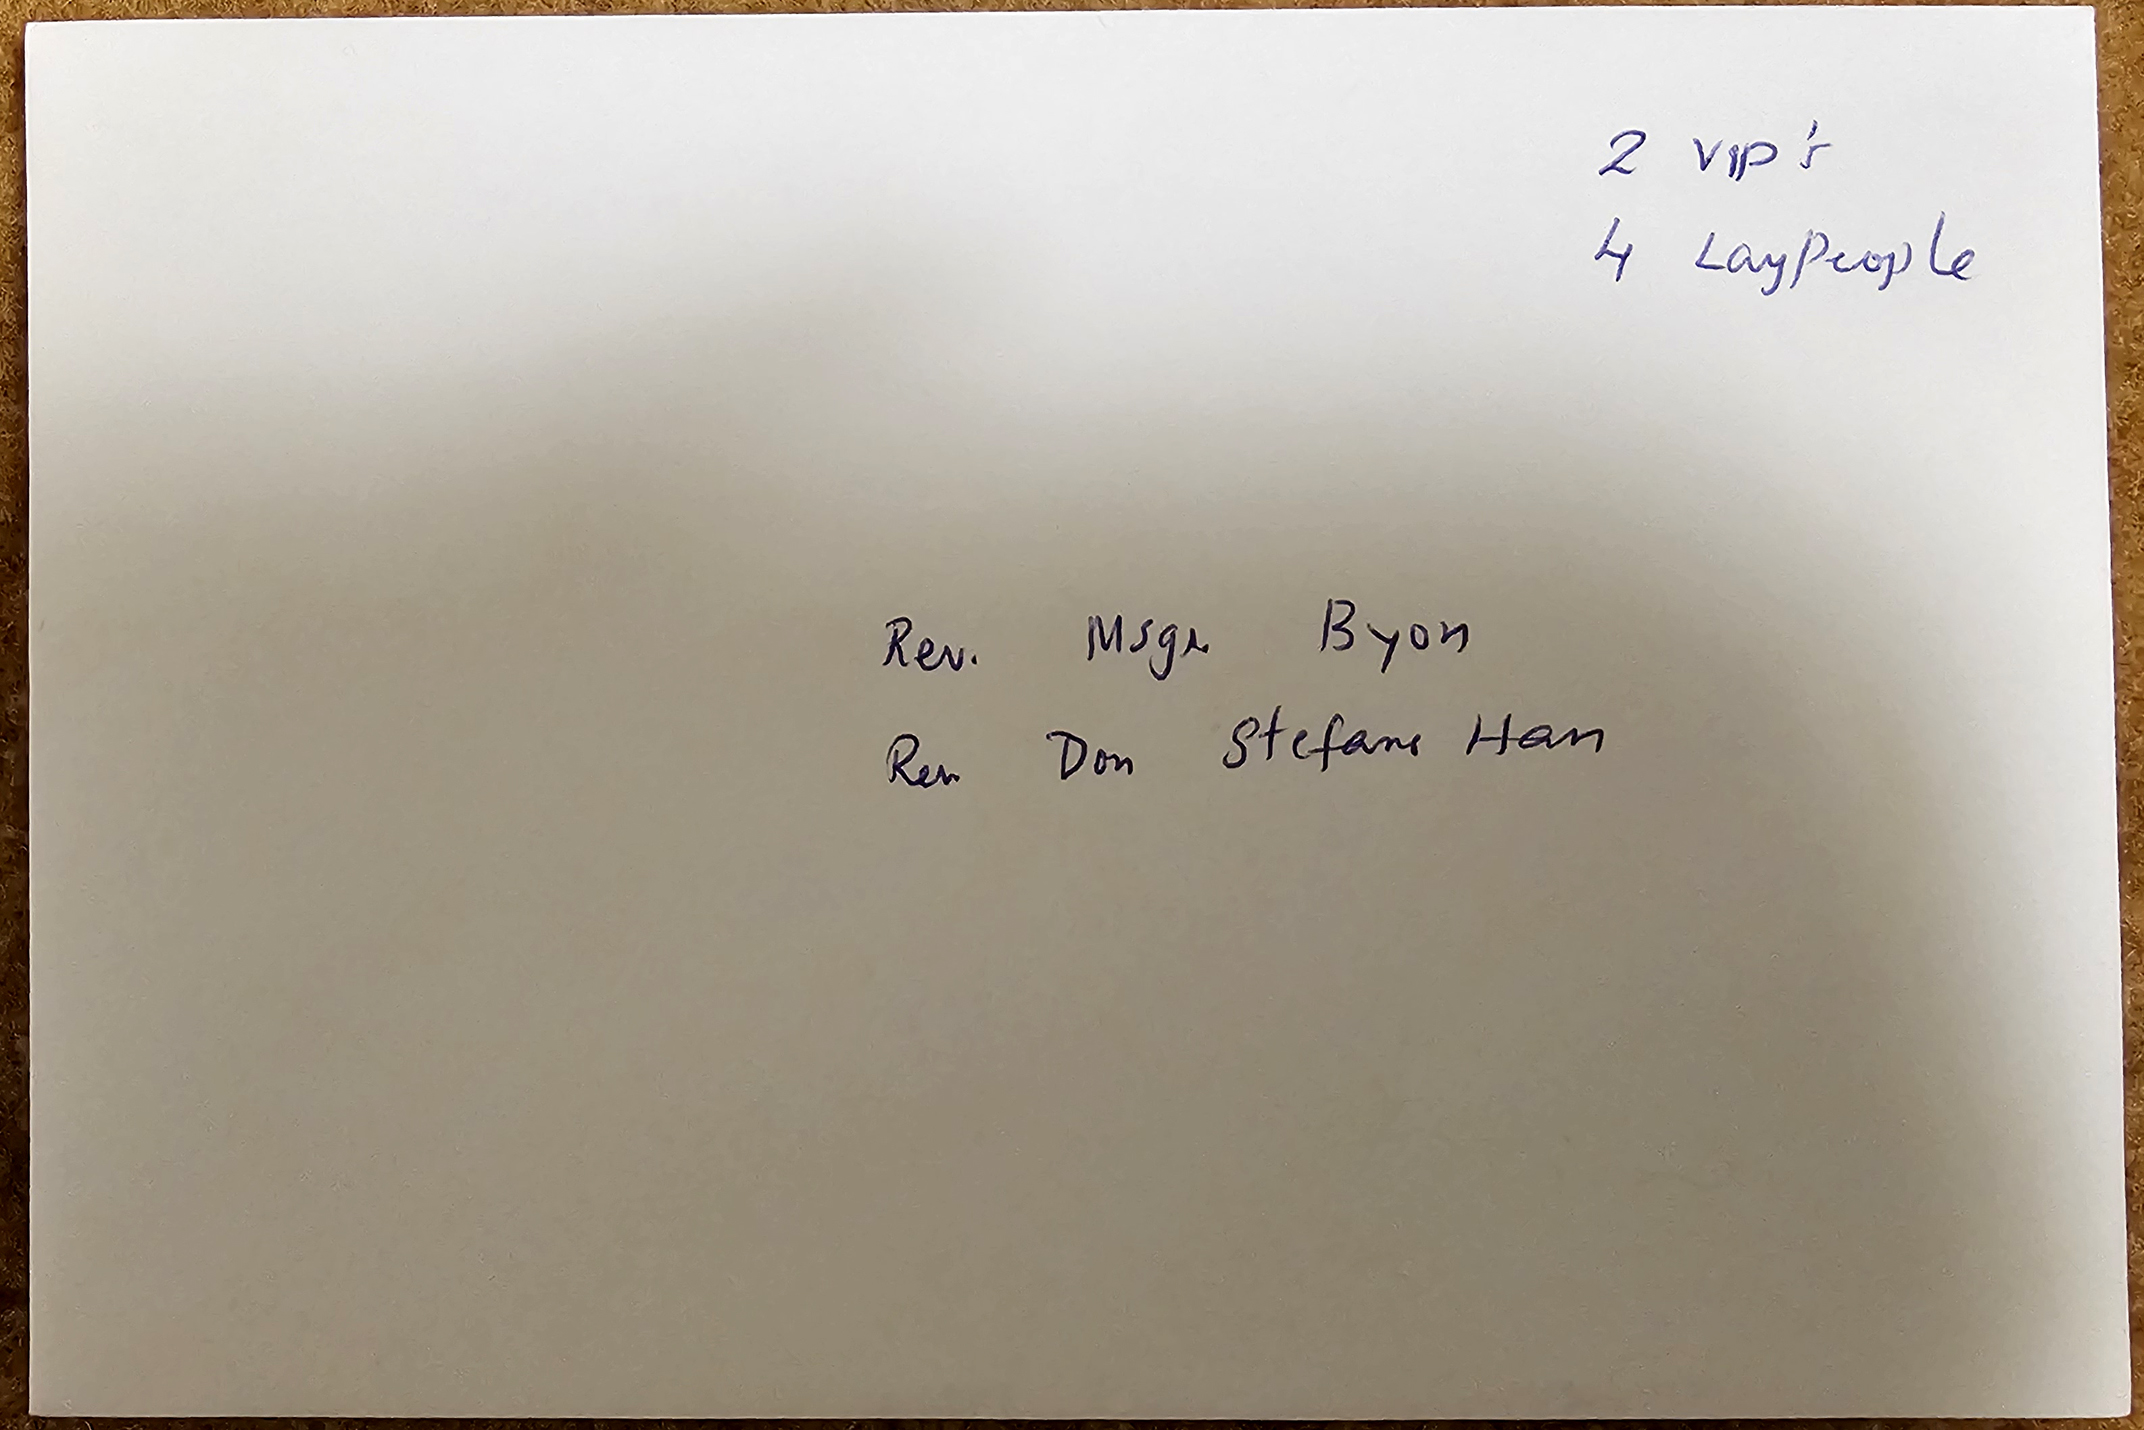 2 VIP's
4 LayPeople
Rev. Msgr Byon
Rev Don Stefano Han